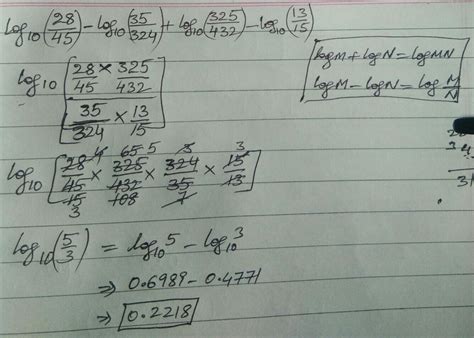 log₁₀(28/45) - log₁₀(35/324) + log₁₀(325/432) - log₁₀(13/15)
logM + logN = logMN
logM - logN = log M/N
log₁₀ [28/45 × 325/432
35/324 × 13/15]
log₁₀ [28/45 × 325/432 × 324/35 × 15/13]
4 65 5 3 3
15 108 7
3
log₁₀(5/3) = log₁₀5 - log₁₀3
⇒ 0.6989 - 0.4771
⇒ 0.2218